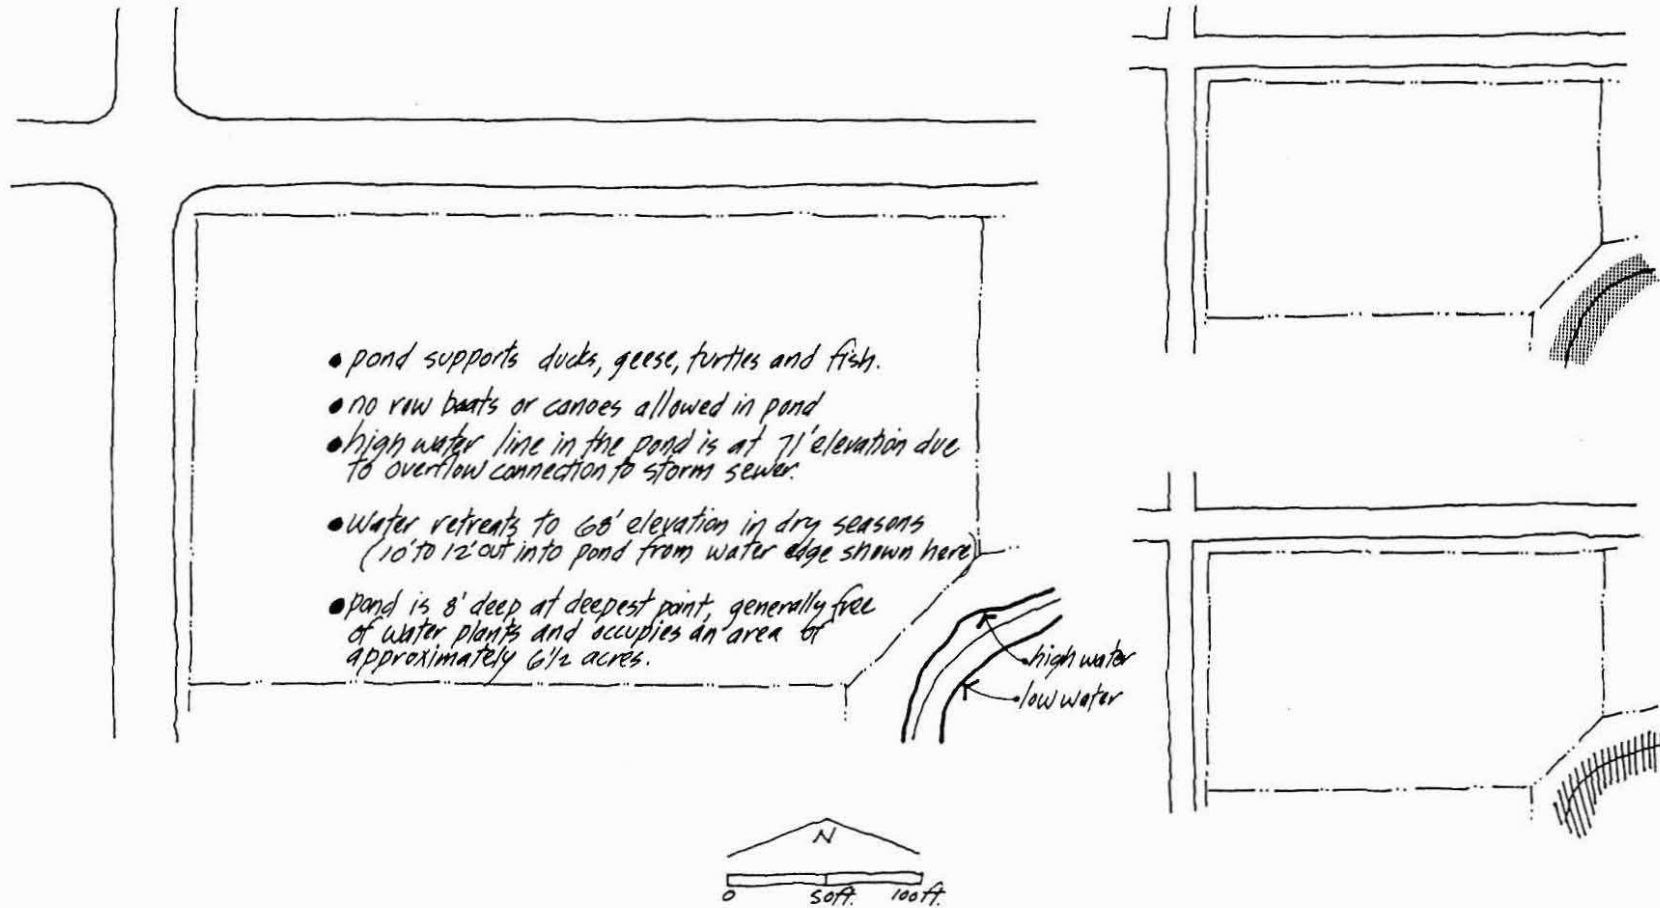 • pond supports ducks, geese, turtles and fish.
• no row boats or canoes allowed in pond
• high water line in the pond is at 71' elevation due
to overflow connection to storm sewer.
• Water retreats to 68' elevation in dry seasons
(10' to 12' out into pond from water edge shown here)
• Pond is 8' deep at deepest point, generally free
of water plants and occupies an area of
approximately 6 1/2 acres.
high water
low water
N
0 50ft. 100ft.